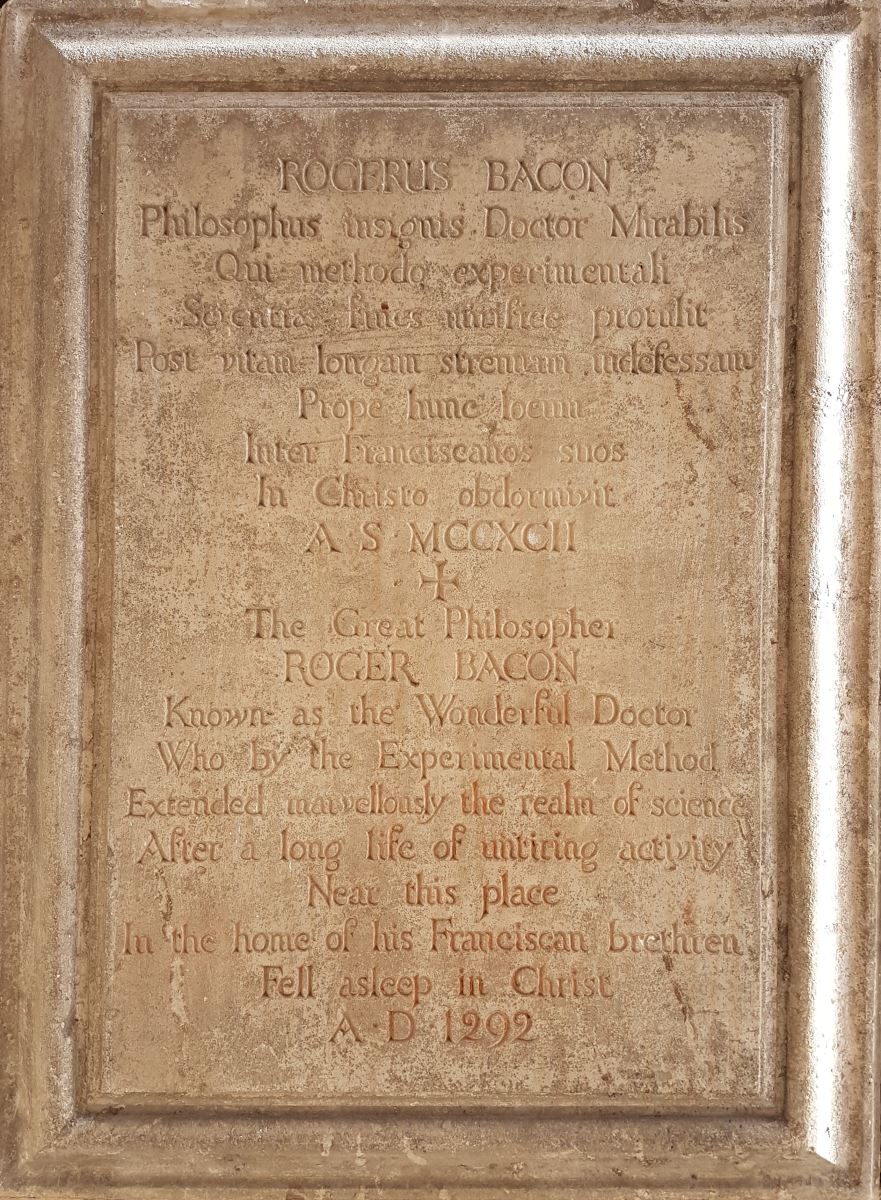 ROGERUS BACON
Philosophus insignis Doctor Mirabilis
Qui methodo experimentali
Scientiae fines mirifice protulit
Post vitam longam strenuam indefessam
Prope hunc locum
Inter Franciscanos suos
In Christo obdormivit
A S MCCXCII
The Great Philosopher
ROGER BACON
Known as the Wonderful Doctor
Who by the Experimental Method
Extended marvellously the realm of science
After a long life of untiring activity
Near this place
In the home of his Franciscan brethren
Fell asleep in Christ
A D 1292